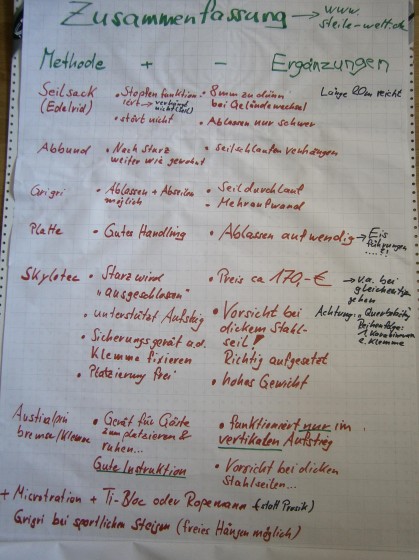 Zusammenfassung → www.
steile-welt.de
Methode + - Ergänzungen
Seilsack • Stopfen funktion • 8mm zu dünn Länge 20m reicht
(Edelrid) iert → verbindl. bei Geländewechsel
• stört nicht • Ablassen nur schwer
Abbund • Nach Sturz • Seilschlaufen verhängen
weiter wie gewohnt
Grigri • Ablassen + Abseilen • Seildurchlauf
möglich • Mehraufwand
Platte • Gutes Handling • Ablassen aufwendig → Eis
führungen
....!?
Skylotec • Sturz wird • Preis ca 170,-€ → v.a. bei
„ausgeschlossen" gleichzeitig
gehen
• unterstützt Aufstieg • Vorsicht bei Achtung: „Querbelastg"
• Sicherungsgerät a.d. dickem Stahl- Reihenfolge:
Klemme fixieren seil! 1. Karabiner
Richtig aufgesetzt 2. Klemme
• Platzierung frei • hohes Gewicht
Austrialpin • Gerät für Gäste • funktioniert nur im
bremse/Klemme zum platzieren & vertikalen Aufstieg
ruhen...
Gute Instruktion • Vorsicht bei dicken
Stahlseilen...
+ Microtraxion + Ti-Bloc oder Ropemann (statt Prusik)
Grigri bei sportlichen Steigen (freies Hängen möglich)